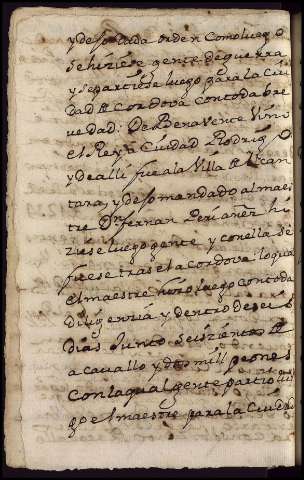 y de so toda orden como luego
se hiziese gente de guerra
y se partiese luego para la ciu
dad de cordova con toda bre
vedad: De Benavente vino
el Rey a Ciudad Rodrigo
y de alli fue a la villa de alcan
tara, y de so mandado al maes
tre Dn fernan Perianez hi
ziese luego gente y con ella se
fuese tras el a cordova lo qual
el maestre hizo luego con toda
diligencia y dentro de seis
dias junto seiszientos de
a cavallo y dos mill peones
con la qual gente partio lue
go el maestre para la ciudad